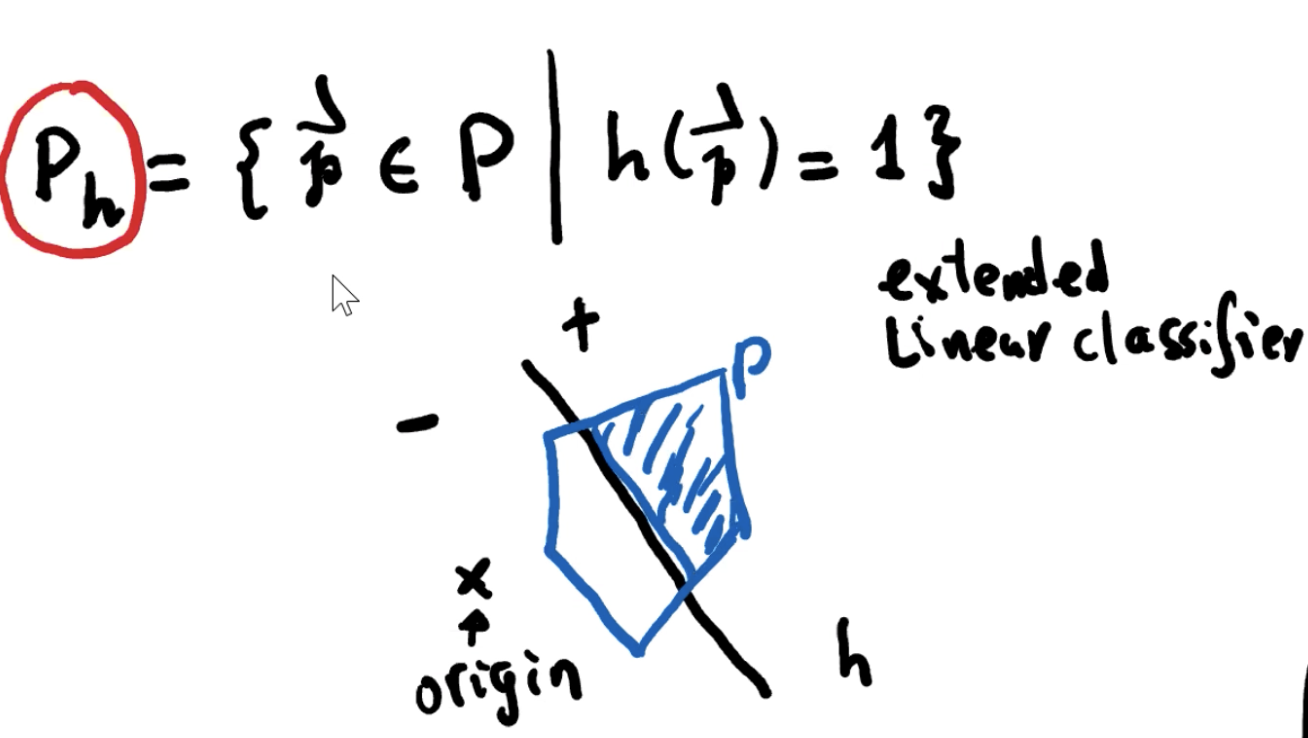 P_h = { p⃗ ∈ P | h(p⃗) = 1 }
extended
Linear classifier
+
P
-
x
↑
origin
h